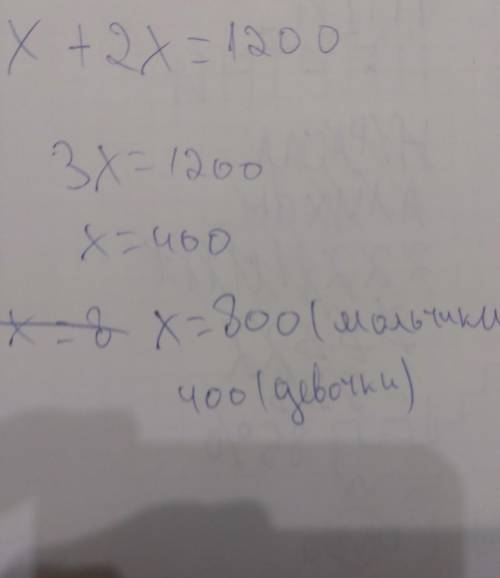 x + 2x = 1200
3x = 1200
x = 400
x = 8 x = 800 (мальчики
400 (девочки)